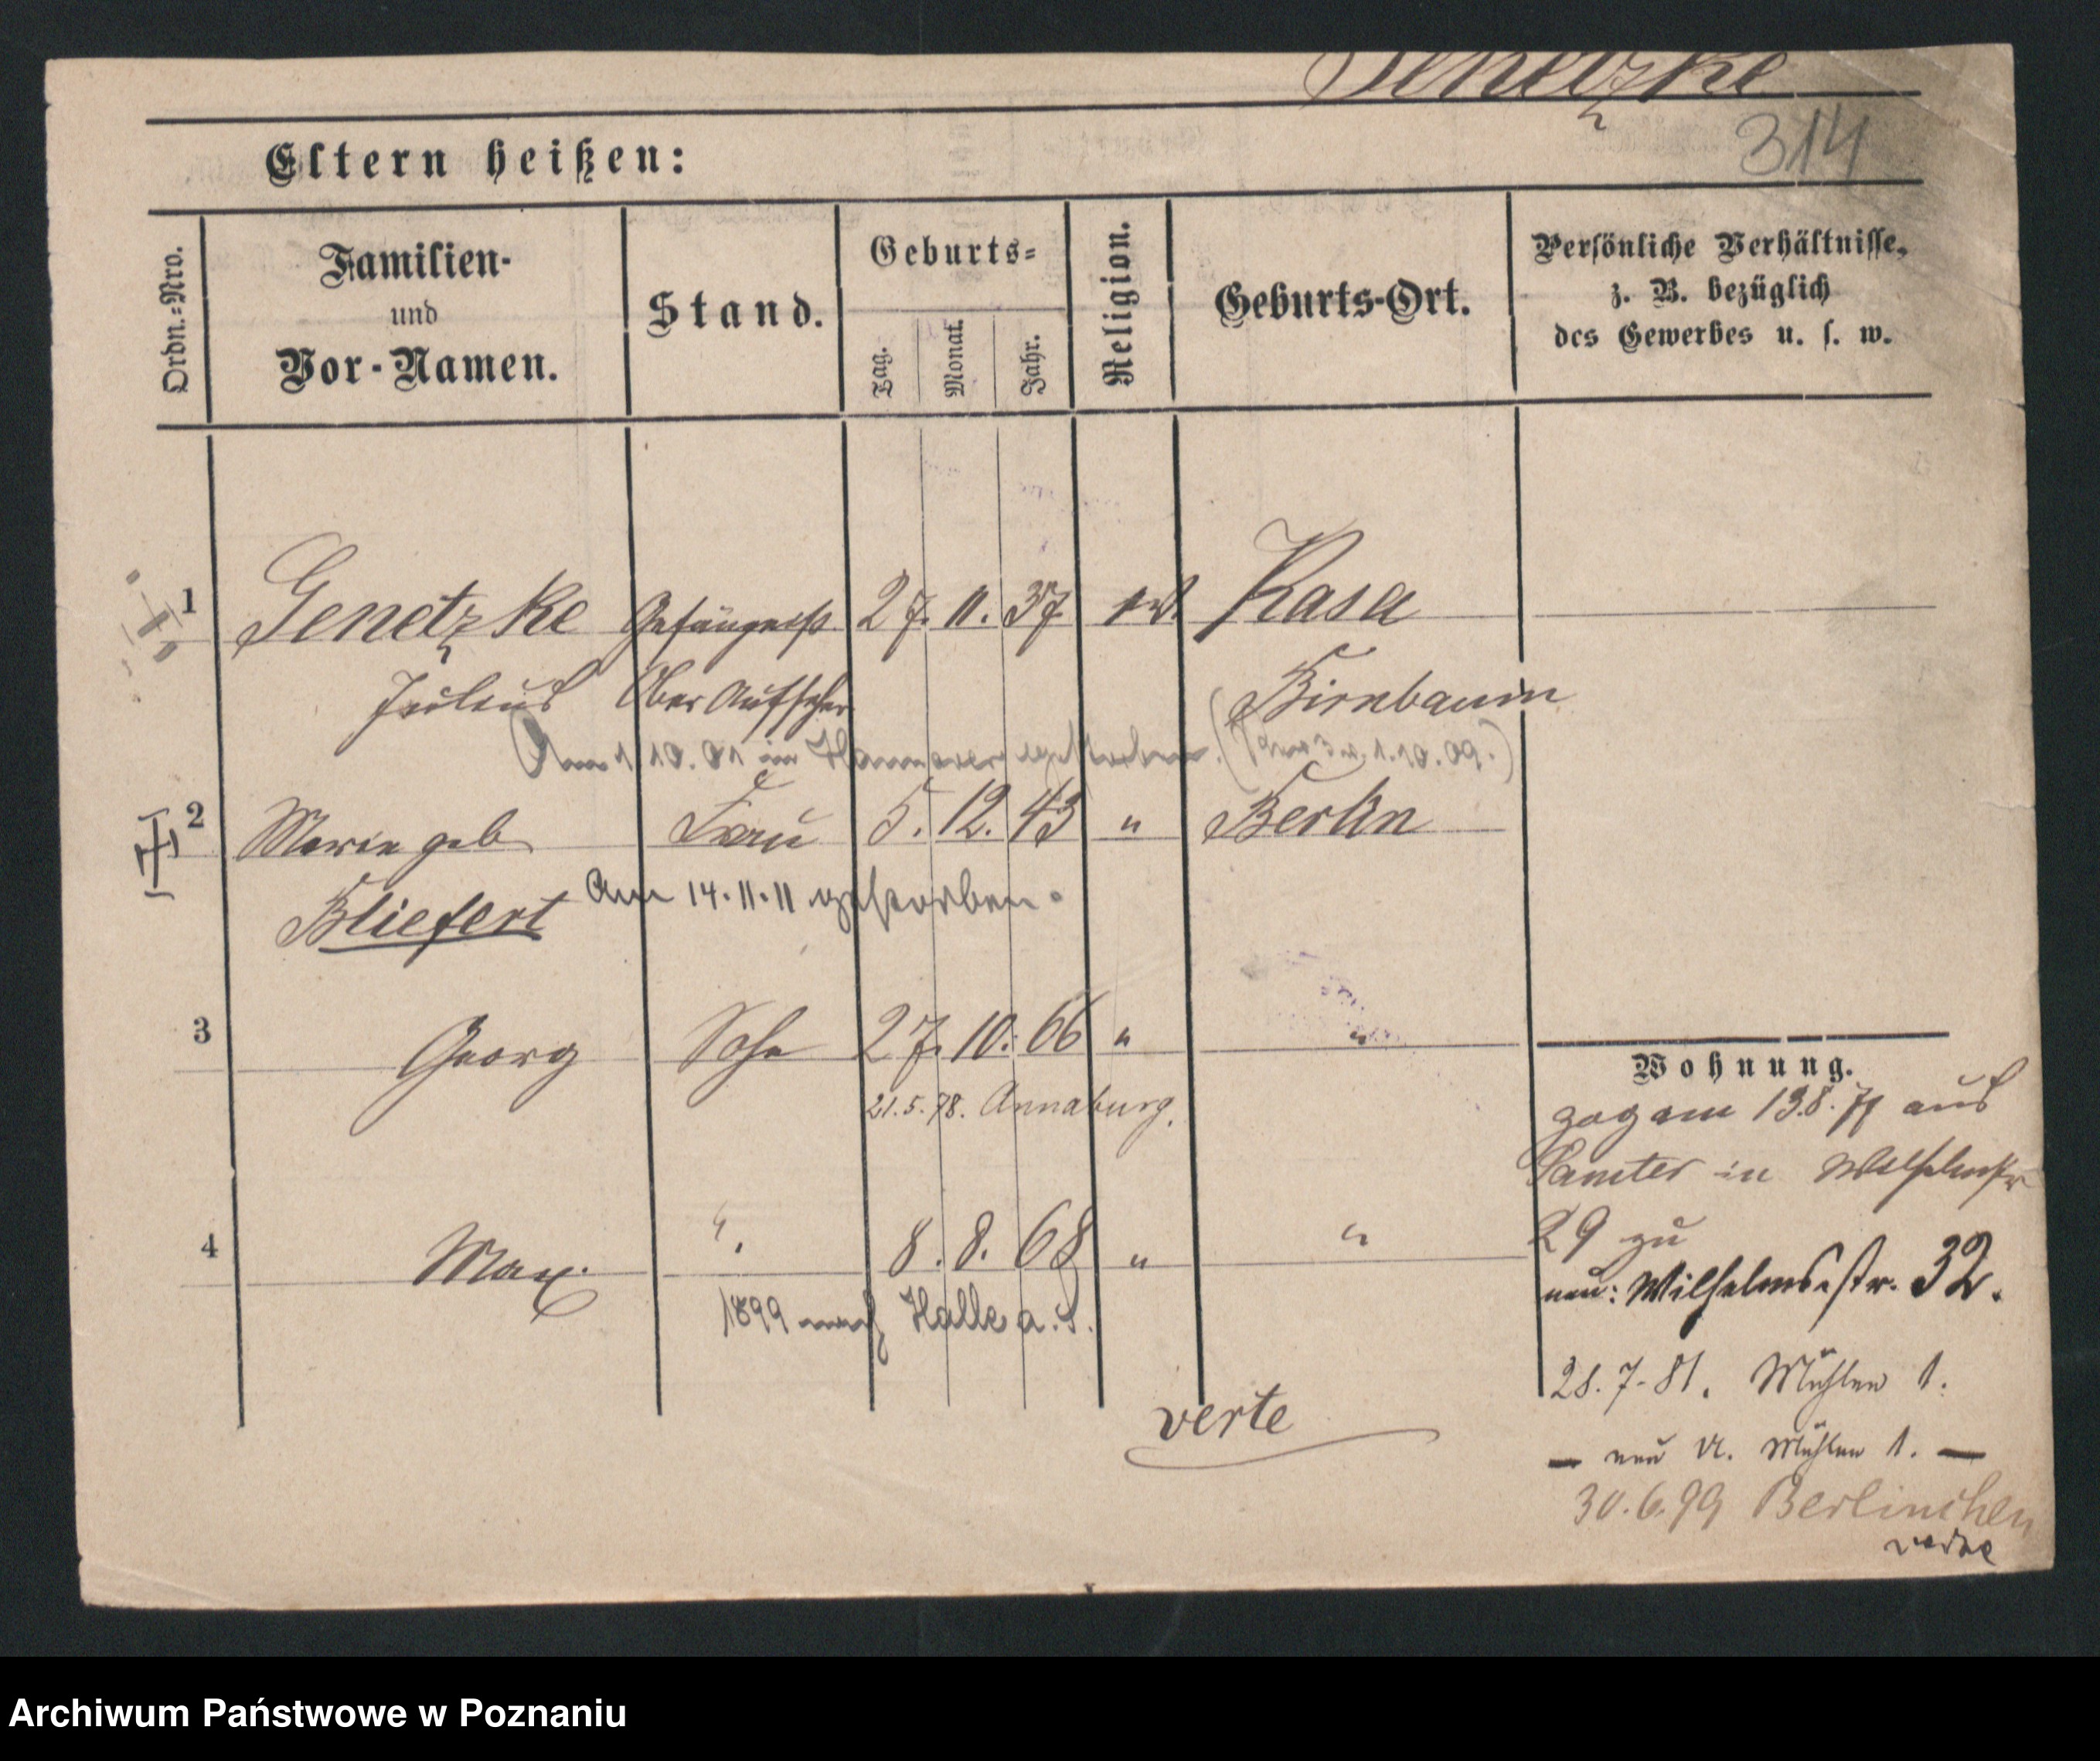 Genetzke
314
Eltern heißen:
Ordn.-Nro.
Familien-
und
Vor-Namen.
Stand.
Geburts-
Tag.
Monat.
Jahr.
Religion.
Geburts-Ort.
Persönliche Verhältnisse,
z. B. bezüglich
des Gewerbes u. s. w.
1 Genetzke Gefängniß 27. 11. 37 Kasa
Julius Ober Aufseher Birnbaum
Am 1.10.01 in Hannover gestorben. 1.10.09.)
2 Marie geb Frau 5. 12. 43 " Berlin
Bliefert Am 14.11.11 gestorben.
3 Georg Sohn 27. 10. 66 " "
21.5.78. Annaburg.
4 Max. ". 8. 8. 68 " "
1899 nach Halle a. S.
verte
Wohnung.
zog am 13.8. aus
Samter in Wilhelmstr
29 zu
neu: Wilhelmsstr. 32.
28.7.81. Mühlen 1.
— neu Mühlen 1. —
30.6.99 Berlinchen
verte
Archiwum Państwowe w Poznaniu